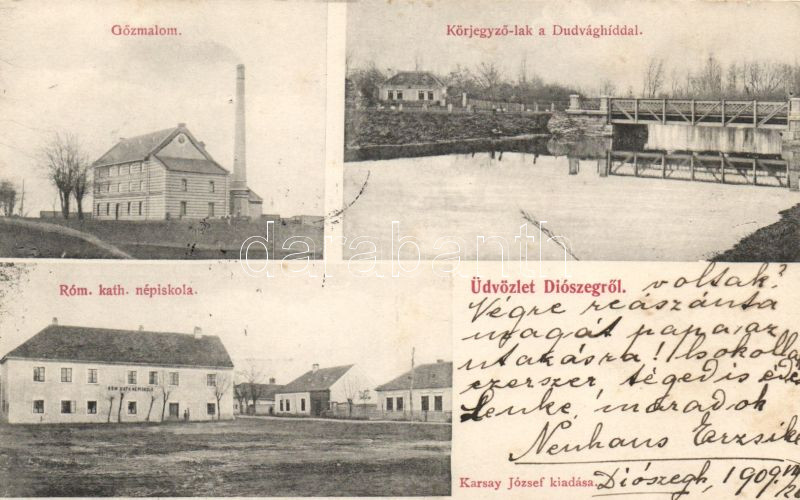 Gőzmalom.
Körjegyző-lak a Dudvághíddal.
Róm. kath. népiskola.
RÓM. KATH. NÉPISKOLA
darabanth
Üdvözlet Diószegről.
voltak?
Végre reászánta
magát papa az
utazásra! Csokollak
ezerszer, téged is édes
Lenke, maradok
Neuhaus Erzsike
Karsay József kiadása.
Diószegh, 1909